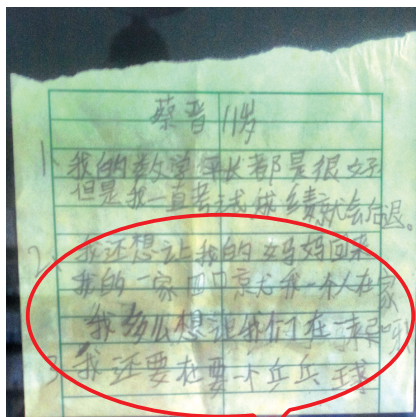 蔡晋 11岁
1、我的数学 都是很好
但是我一直考 成绩就会后退。
2、我还想让我的妈妈回来
我的一家四口 我一个人在家
我多么想 我们在 呀
3、我还要在要一个乒乓球